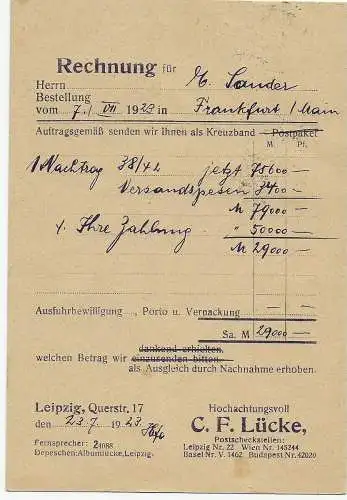 Rechnung für
Herrn
Bestellung
vom 7. / VII 1923 in
Sander
Frankfurt / Main
Auftragsgemäß senden wir Ihnen als Kreuzband - Postpaket
M Pf.
1 Nachtrag 38/42 jetzt 75600 —
Versandspesen 3400 —
M 79000 —
Ihre Zahlung " 50000 —
M 29000 —
Ausfuhrbewilligung , Porto u. Verpackung
Sa. M 29000 —
dankend erhielten.
welchen Betrag wir einzusenden bitten.
als Ausgleich durch Nachnahme erhoben.
Leipzig, Querstr. 17
den 23.7. 1923
Fernsprecher: 24088
Depeschen: Albumlücke, Leipzig.
Hochachtungsvoll
C. F. Lücke,
Postscheckstellen:
Leipzig Nr. 22 Wien 145244
Basel Nr. V. 1462 Budapest Nr. 42020